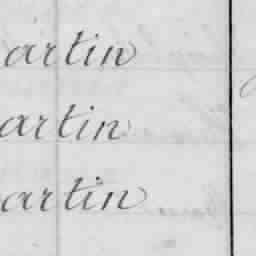 artin
artin
artin